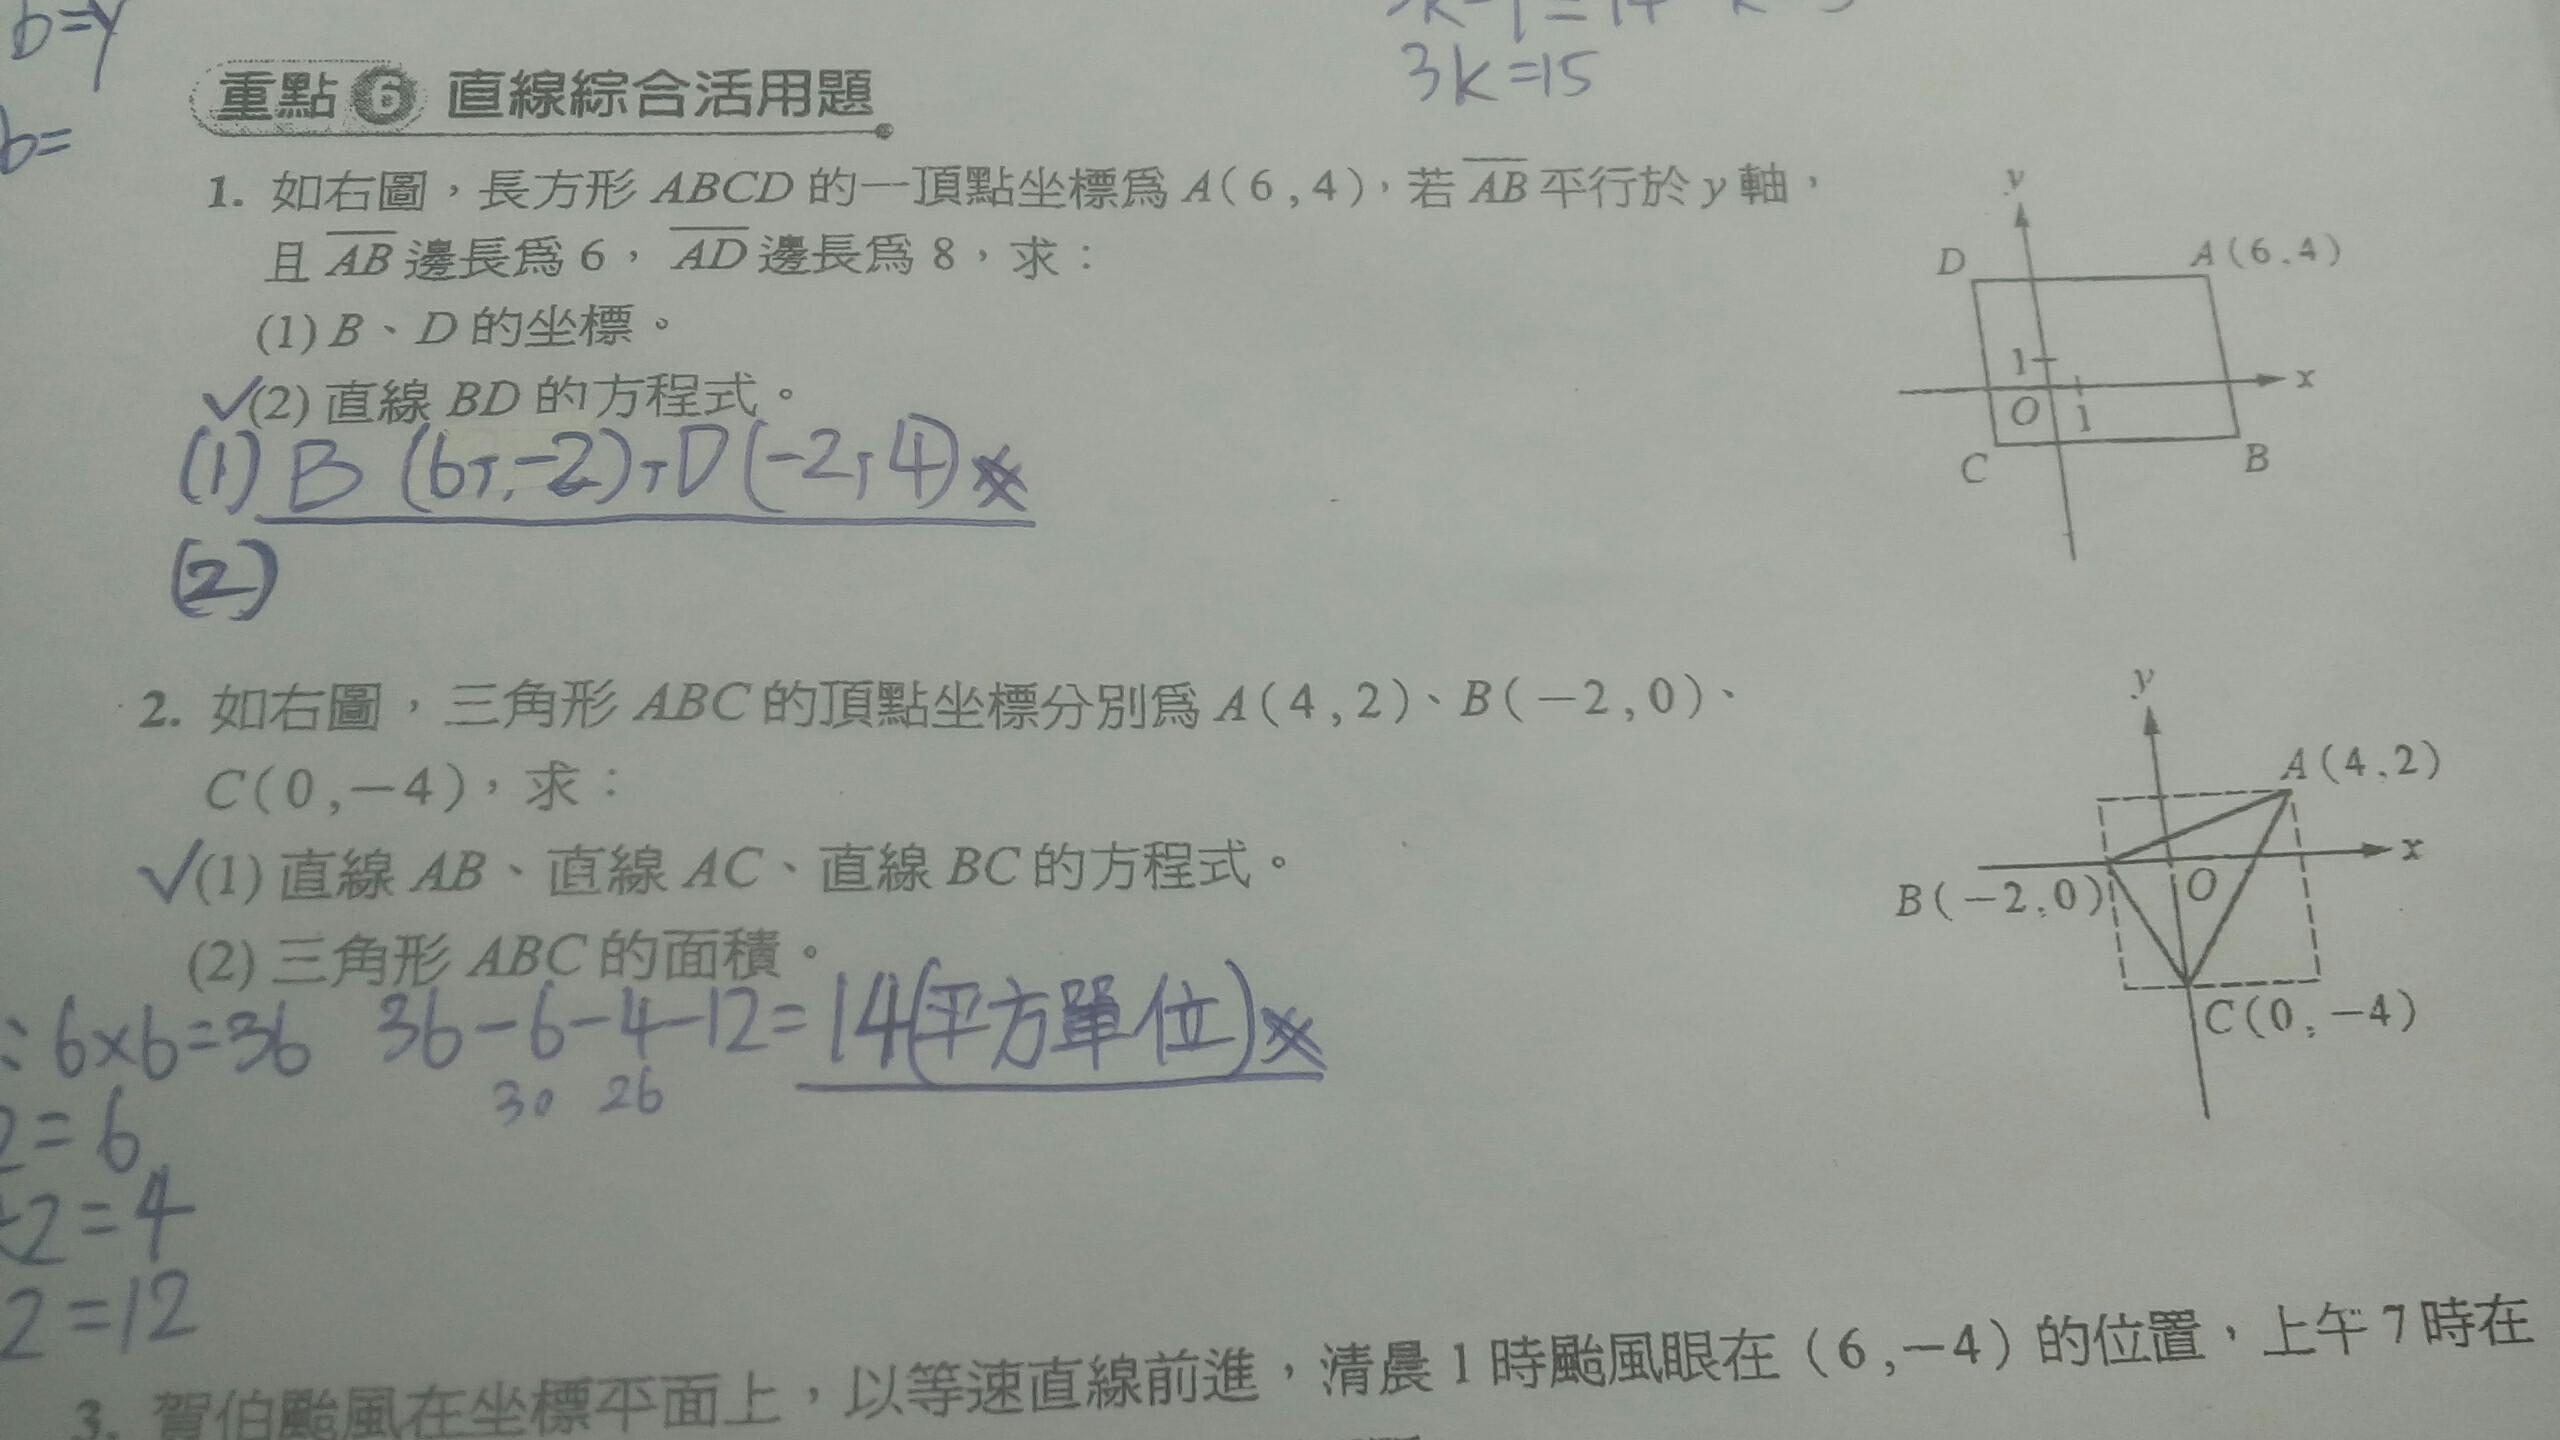 b=y
3k=15
b=
重點 6 直線綜合活用題
1. 如右圖，長方形 ABCD 的一頂點坐標爲 A(6,4)，若 AB 平行於 y 軸，
且 AB 邊長爲 6， AD 邊長爲 8，求：
(1) B、D 的坐標。
✓(2) 直線 BD 的方程式。
(1) B (6,-2),D(-2,4)
(2)
y
D
A(6,4)
1
x
O
1
C
B
2. 如右圖，三角形 ABC 的頂點坐標分別爲 A(4,2)、B(-2,0)、
C(0,-4)，求：
✓(1) 直線 AB、直線 AC、直線 BC 的方程式。
(2) 三角形 ABC 的面積。
:6×6=36 36-6-4-12=14(平方單位)
30 26
2=6
2=4
2=12
y
A(4,2)
x
B(-2,0)
O
C(0,-4)
3. 賀伯颱風在坐標平面上，以等速直線前進，清晨 1 時颱風眼在 (6,-4) 的位置，上午 7 時在